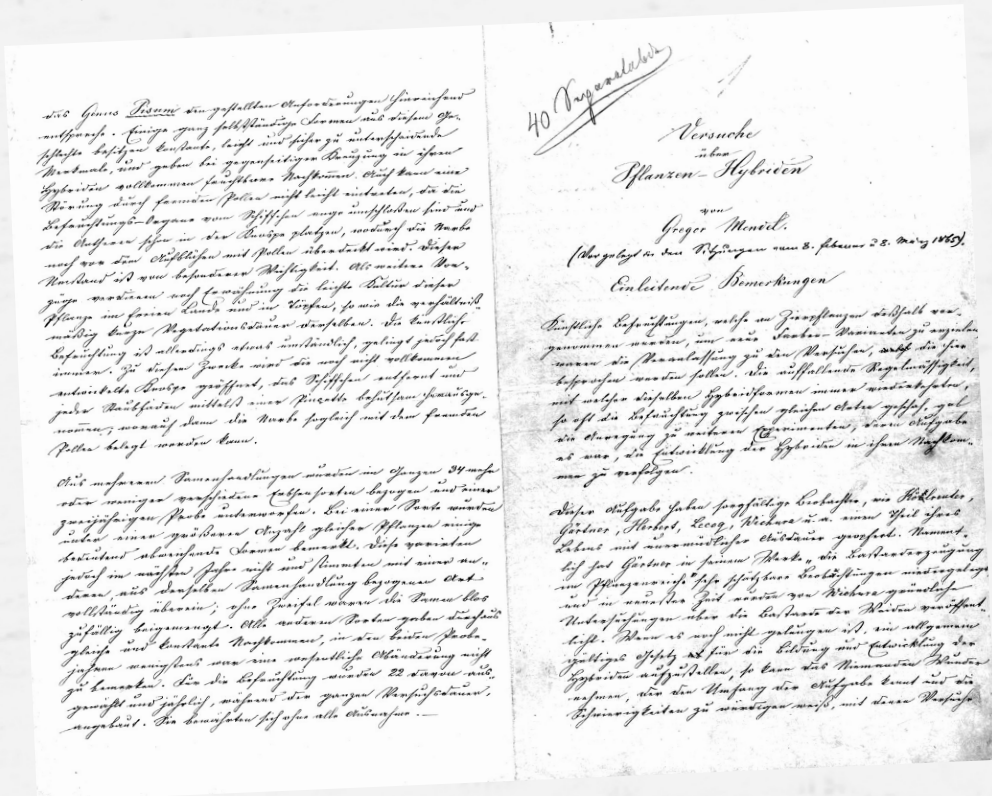 das Genus Pisum den gestellten Anforderungen hinreichend
entspreche. Einige ganz selbstständige Formen aus diesem Ge-
schlechte besitzen konstante, leicht und sicher zu unterscheidende
Merkmale, und geben bei gegenseitiger Kreuzung in ihren
Hybriden vollkommen fruchtbare Nachkommen. Auch kann eine
Störung durch fremden Pollen nicht leicht eintreten, da die
Befruchtungs-Organe vom Schiffchen enge umschlossen sind und
die Antheren schon in der Knospe platzen, wodurch die Narbe
noch vor dem Aufblühen mit Pollen überdeckt wird. Dieser
Umstand ist von besonderer Wichtigkeit. Als weitere Vor-
züge verdienen noch Erwähnung die leichte Kultur dieser
Pflanze im freien Lande und in Töpfen, so wie die verhältniß-
mäßig kurze Vegetationsdauer derselben. Die künstliche
Befruchtung ist allerdings etwas umständlich, gelingt jedoch fast
immer. Zu diesem Zwecke wird die noch nicht vollkommen
entwickelte Knospe geöffnet, das Schiffchen entfernt und
jeder Staubfaden mittelst einer Pinzette behutsam herausge-
nommen, worauf dann die Narbe sogleich mit dem fremden
Pollen belegt werden kann.
Aus mehreren Samenhandlungen wurden im Ganzen 34 mehr
oder weniger verschiedene Erbsensorten bezogen und einer
zweijährigen Probe unterworfen. Bei einer Sorte wurden
unter einer größeren Anzahl gleicher Pflanzen einige
bedeutend abweichende Formen bemerkt. Diese variirten
jedoch im nächsten Jahre nicht und stimmten mit einer an-
deren, aus derselben Samenhandlung bezogenen Art
vollständig überein; ohne Zweifel waren die Samen blos
zufällig beigemengt. Alle anderen Sorten gaben durchaus
gleiche und konstante Nachkommen, in den beiden Probe-
jahren wenigstens war eine wesentliche Abänderung nicht
zu bemerken. Für die Befruchtung wurden 22 davon aus-
gewählt und jährlich, während der ganzen Versuchsdauer,
angebaut. Sie bewährten sich ohne alle Ausnahme. —
40 Separatabdr
Versuche
über
Pflanzen-Hybriden
von
Gregor Mendel.
(Vorgelegt in den Sitzungen vom 8. Februar u 8. März 1865).
Einleitende Bemerkungen
Künstliche Befruchtungen, welche an Zierpflanzen deßhalb vor-
genommen wurden, um neue Farben Varianten zu erzielen
waren die Veranlassung zu den Versuchen, die hier
besprochen werden sollen. Die auffallende Regelmässigkeit,
mit welcher dieselben Hybridformen immer wiederkehrten,
so oft die Befruchtung zwischen gleichen Arten geschah, gab
die Anregung zu weiteren Experimenten, deren Aufgabe
es war, die Entwicklung der Hybriden in ihren Nachkom-
men zu verfolgen.
Dieser Aufgabe haben sorgfältige Beobachter, wie Kölreuter,
Gärtner, Herbert, Lecoq, Wichura u. a. einen Theil ihres
Lebens mit unermüdlicher Ausdauer geopfert. Nament-
lich hat Gärtner in seinem Werke „die Bastarderzeugung
im Pflanzenreiche" sehr schätzbare Beobachtungen niedergelegt
und in neuester Zeit wurden von Wichura gründliche
Untersuchungen über die Bastarde der Weiden veröffent-
licht. Wenn es noch nicht gelungen ist, ein allgemein
gültiges Gesetz für die Bildung und Entwicklung der
Hybriden aufzustellen, so kann das Niemanden Wunder
nehmen, der den Umfang der Aufgabe kennt und die
Schwierigkeiten zu würdigen weiß, mit denen Versuche